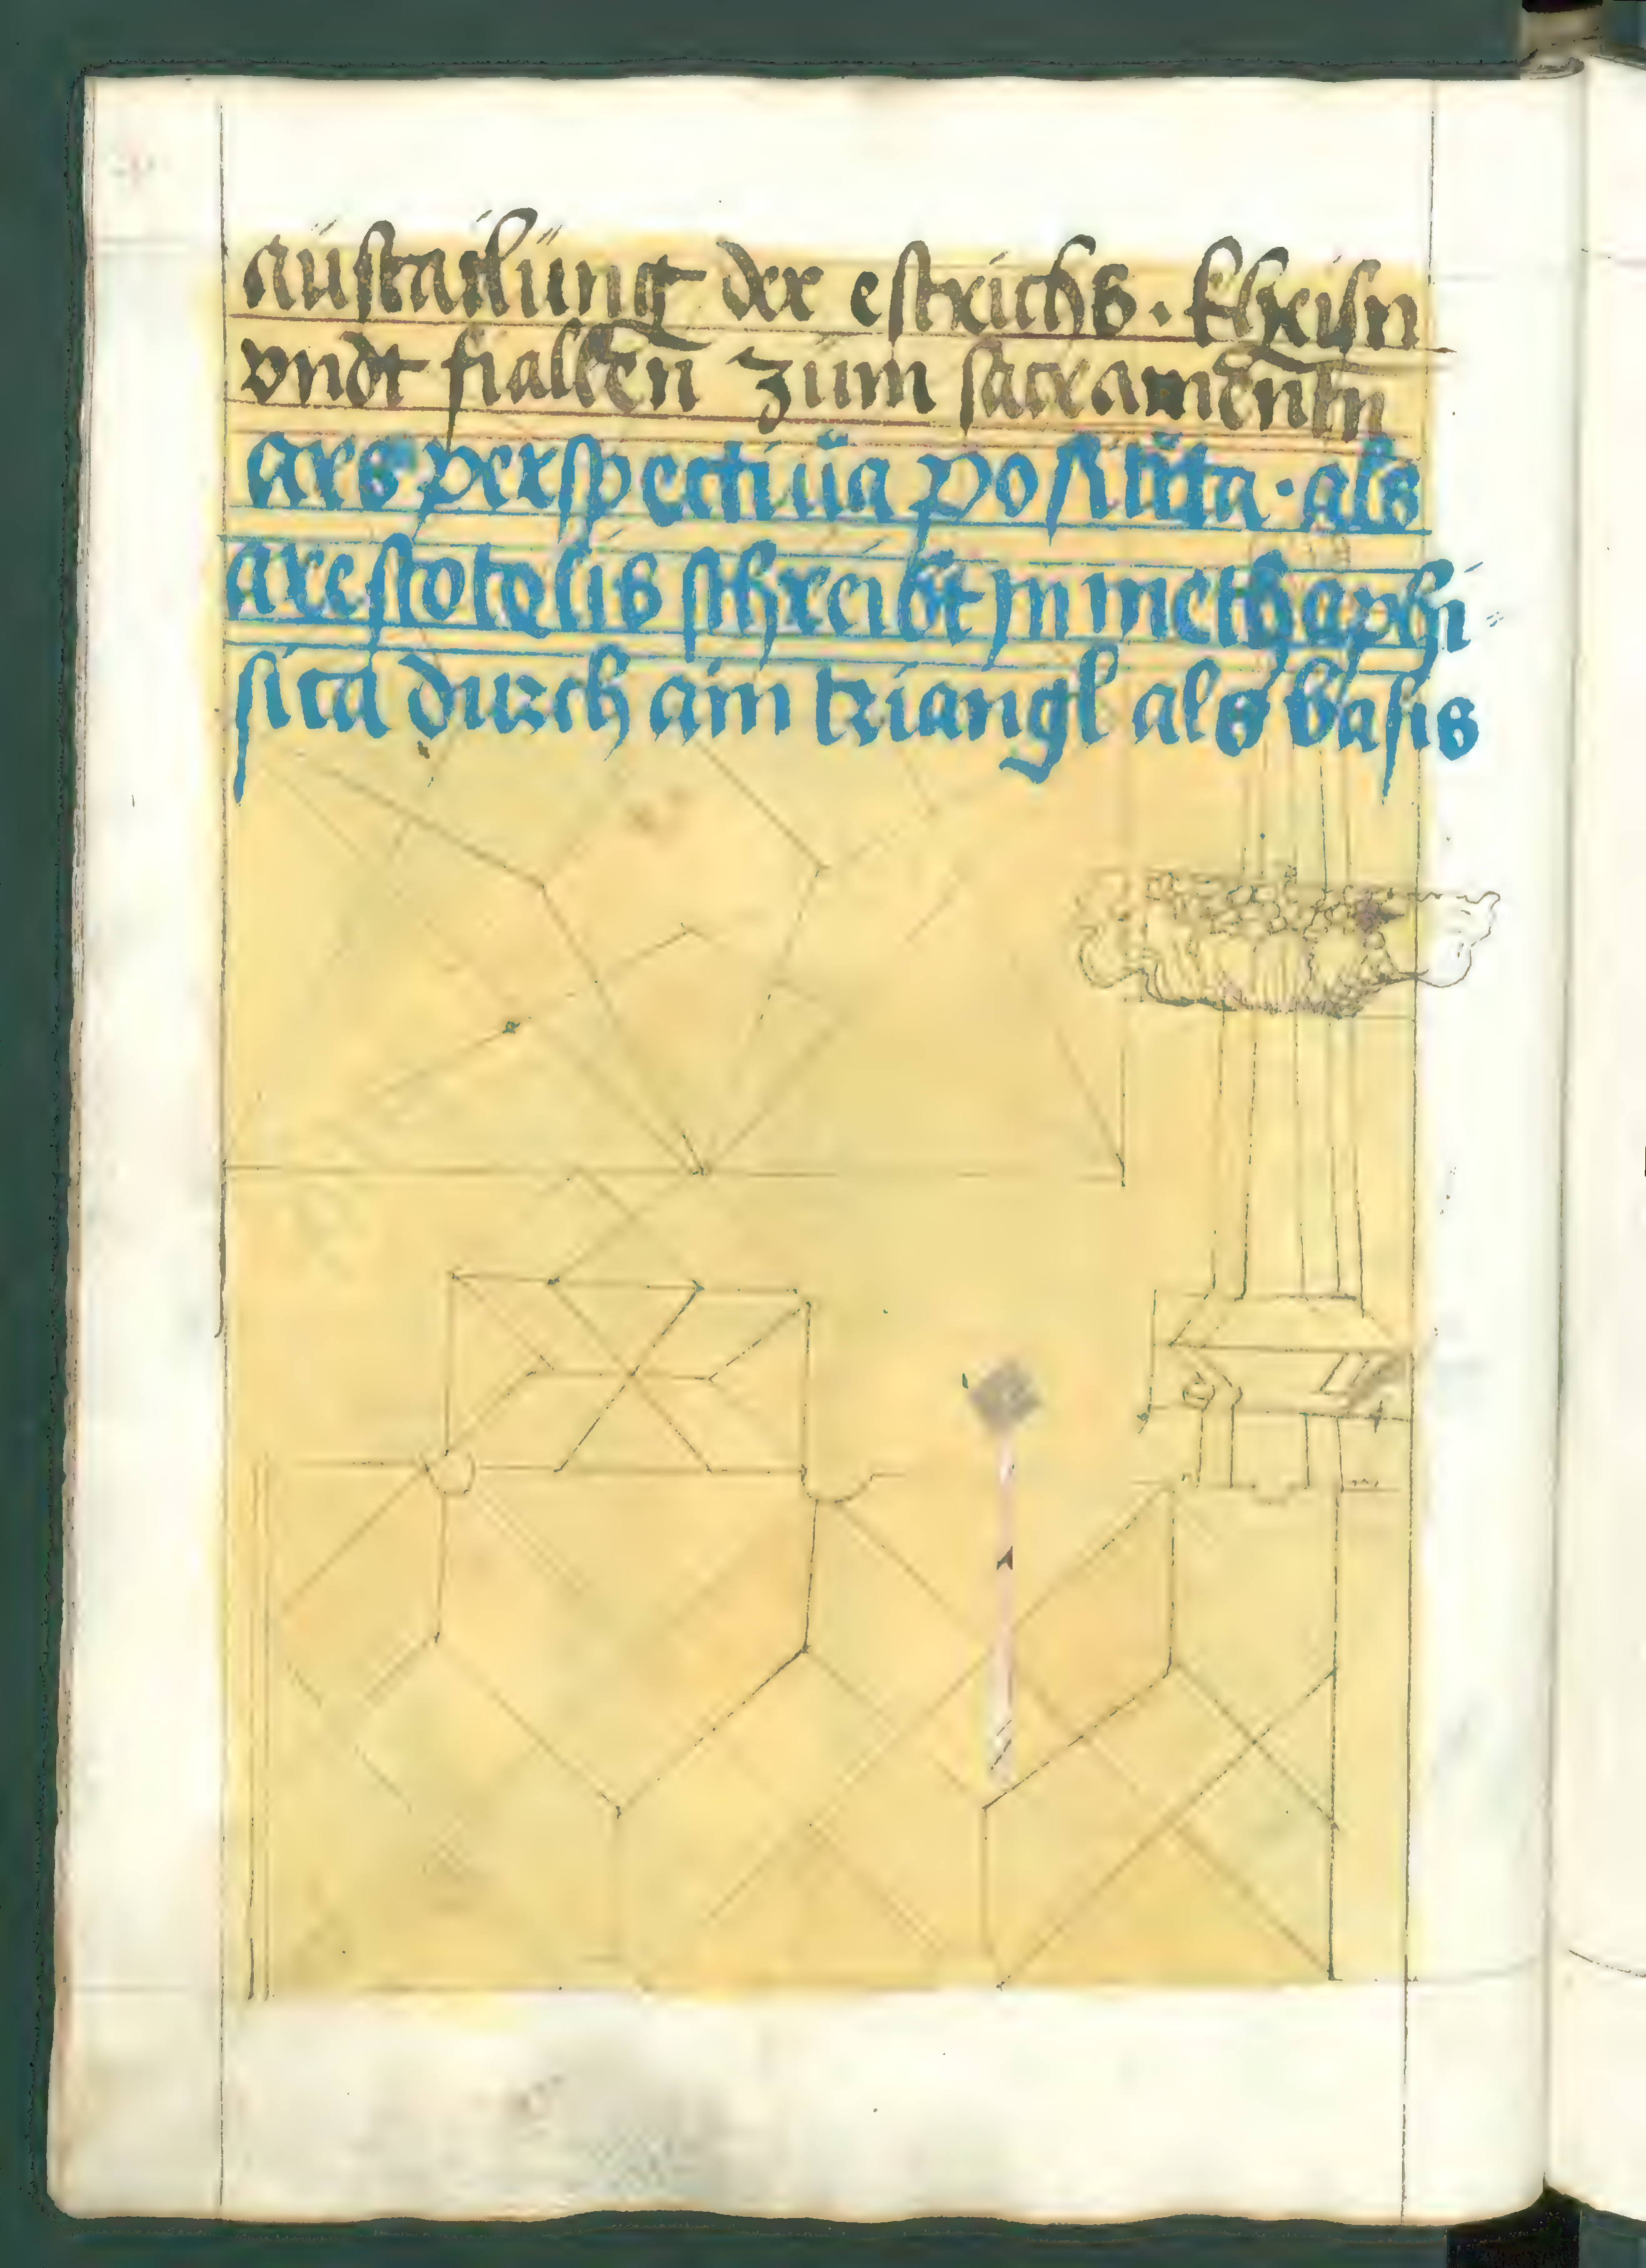 aüstailüng der estrichs. khreisn
vndt fiallen züm sacramentn
ars perspectiüa positita. als
arestotelis schreibt jn methaphi
sica durch ain triangl als basis